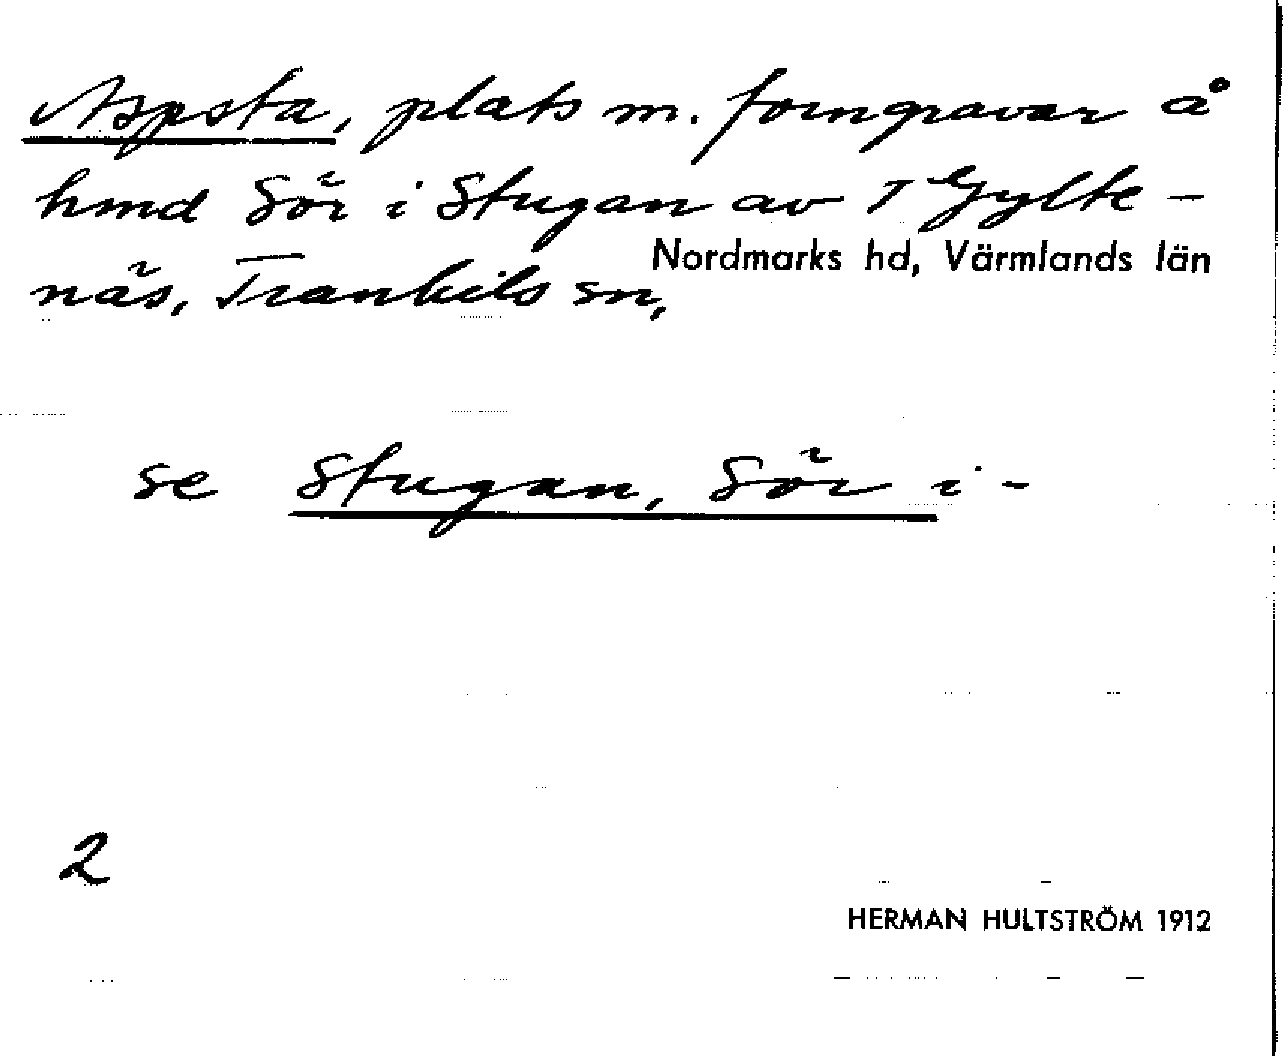 Aspsta, plats m. forngravar å
hmd Sör i Stugan av 1 Gylte-
näs, Trankils sn,
Nordmarks hd, Värmlands län
se Stugan, Sör i -
2
HERMAN HULTSTRÖM 1912